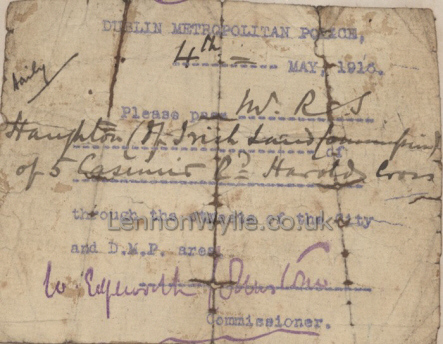 DUBLIN METROPOLITAN POLICE,
4th MAY, 1916.
Daily
Please pass Mr. R. S.
Haughton (Of Irish Land Commission)
of
of 5 Casimir Rd Harolds Cross
through the streets of the City
LennonWylie.co.uk
and D.M.P. area.
W Edgeworth Johnstone
Commissioner.